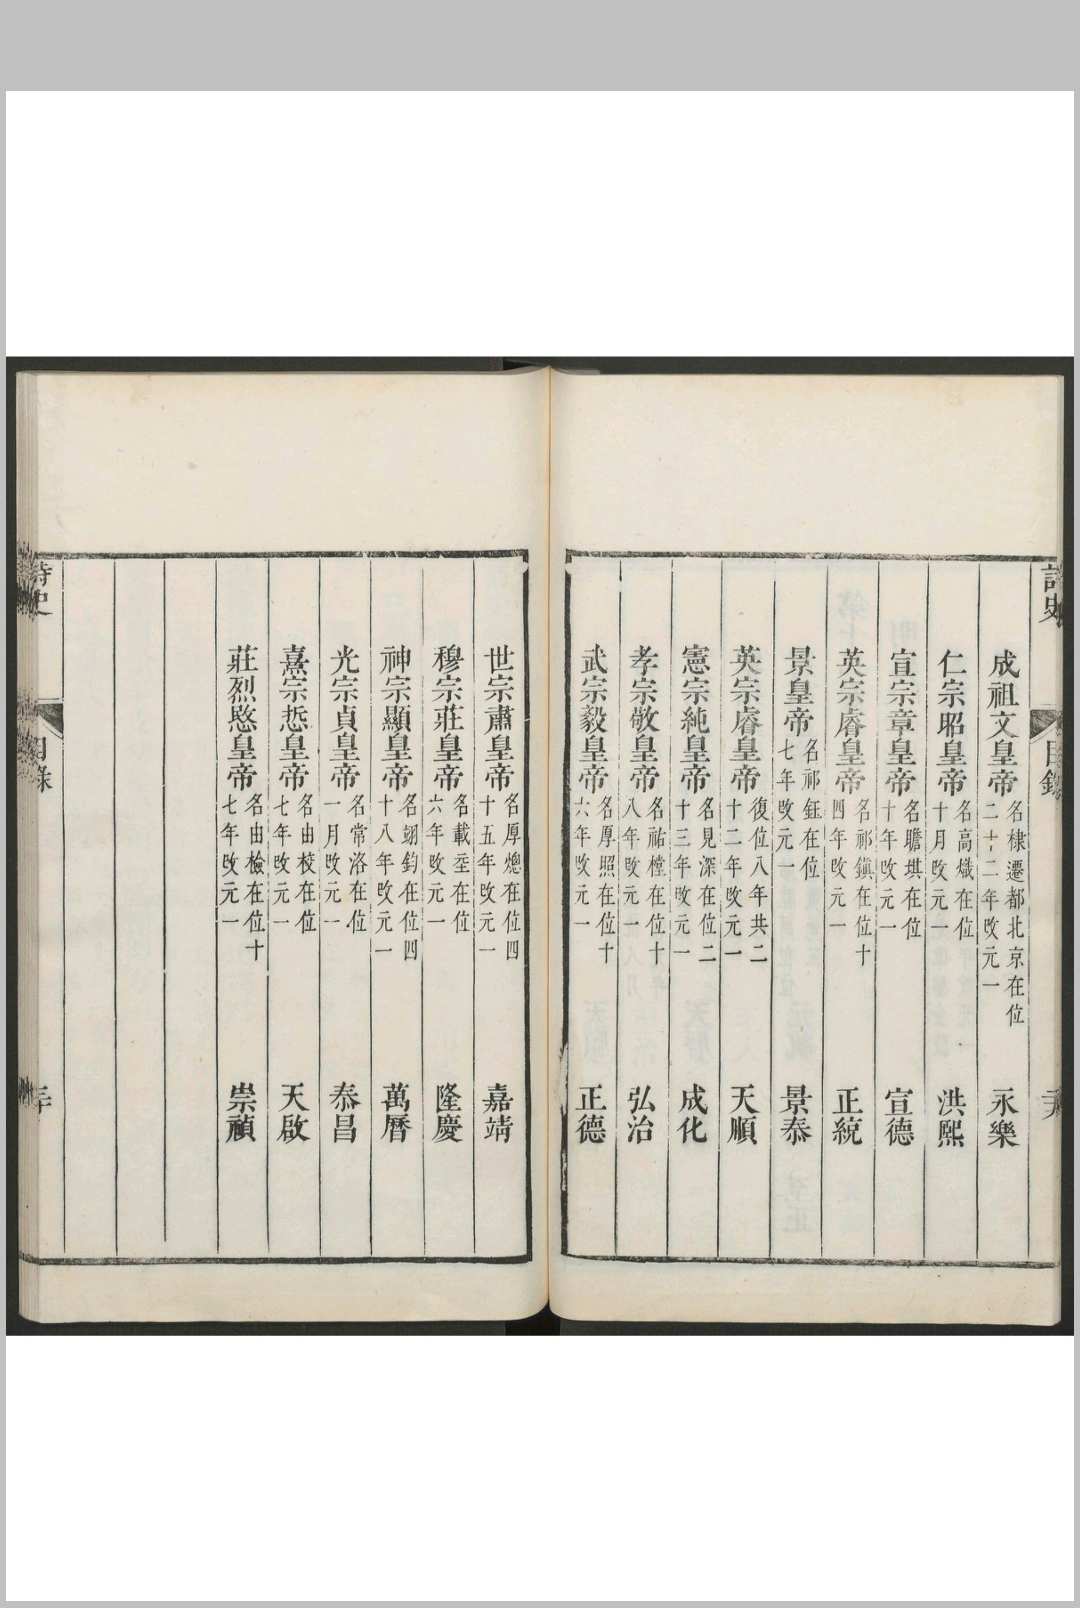 詩史
目錄
成祖文皇帝 名棣遷都北京在位二十二年改元一 永樂
仁宗昭皇帝 名高熾在位十月改元一 洪熙
宣宗章皇帝 名瞻基在位十年改元一 宣德
英宗睿皇帝 名祁鎮在位十四年改元一 正統
景皇帝 名祁鈺在位七年改元一 景泰
英宗睿皇帝 復位八年共二十二年改元一 天順
憲宗純皇帝 名見深在位二十三年改元一 成化
孝宗敬皇帝 名祐樘在位十八年改元一 弘治
武宗毅皇帝 名厚照在位十六年改元一 正德
世宗肅皇帝 名厚熜在位四十五年改元一 嘉靖
穆宗莊皇帝 名載坖在位六年改元一 隆慶
神宗顯皇帝 名翊鈞在位四十八年改元一 萬曆
光宗貞皇帝 名常洛在位一月改元一 泰昌
熹宗悊皇帝 名由校在位七年改元一 天啟
莊烈愍皇帝 名由檢在位十七年改元一 崇禎
詩史
目錄